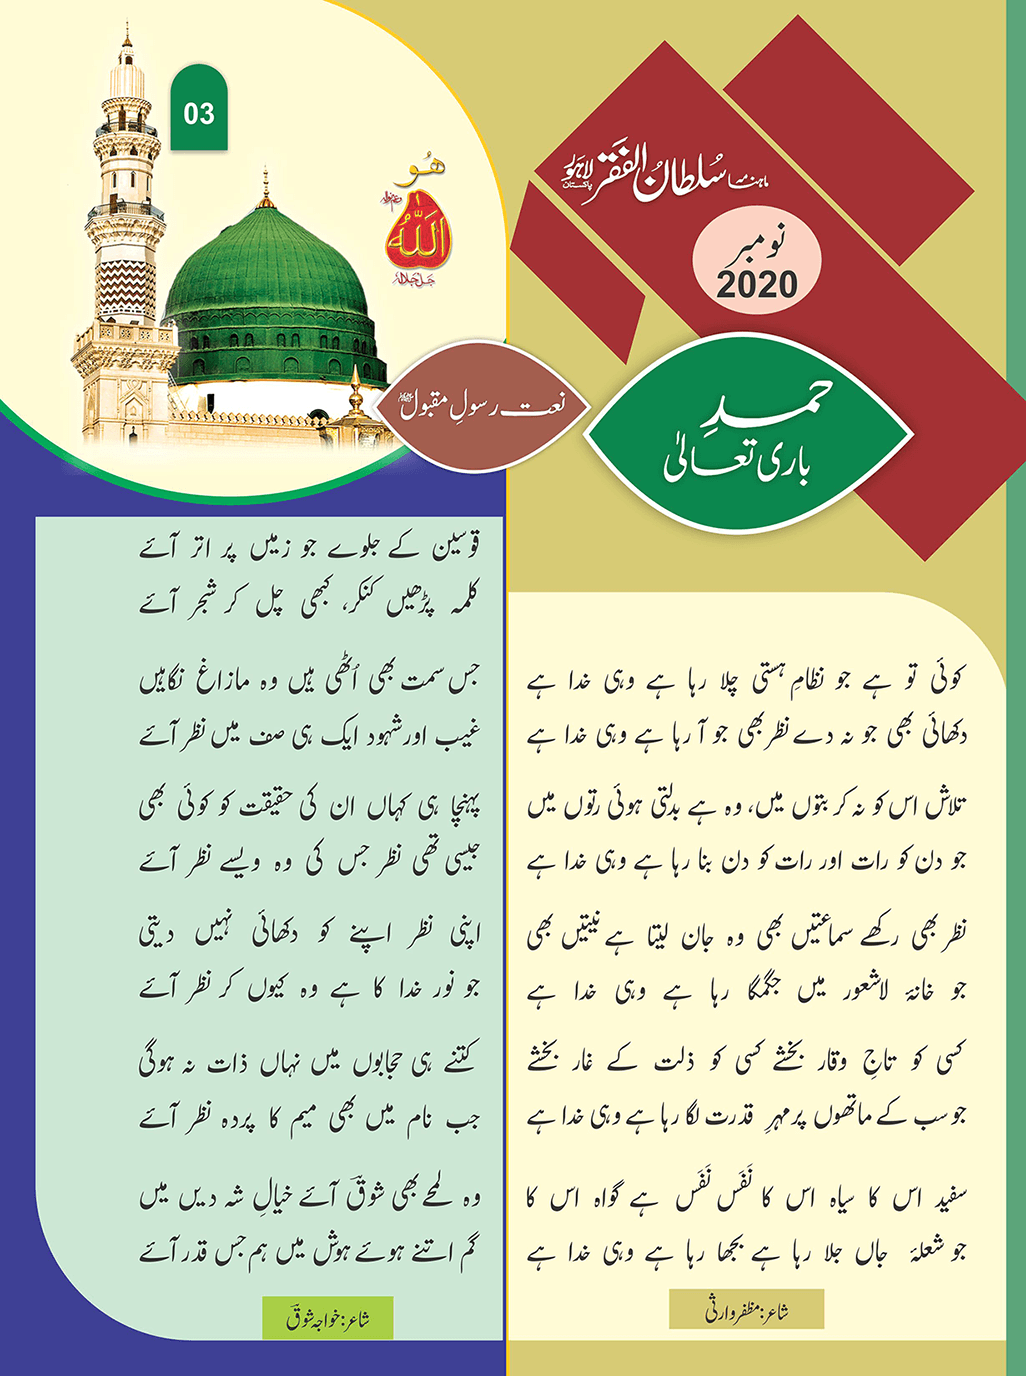 ماہنامہ سلطان الفقر لاہور
پاکستان
نومبر
2020
03
ھُو
اللہ
جل جلالہ
حمدِ
باری تعالیٰ
کوئی تو ہے جو نظامِ ہستی چلا رہا ہے وہی خدا ہے
دکھائی بھی جو نہ دے نظر بھی جو آ رہا ہے وہی خدا ہے
تلاش اس کو نہ کر بتوں میں، وہ ہے بدلتی ہوئی رتوں میں
جو دن کو رات اور رات کو دن بنا رہا ہے وہی خدا ہے
نظر بھی رکھے سماعتیں بھی وہ جان لیتا ہے نیتیں بھی
جو خانۂ لاشعور میں جگمگا رہا ہے وہی خدا ہے
کسی کو تاجِ وقار بخشے کسی کو ذلت کے غار بخشے
جو سب کے ماتھوں پر مہرِ قدرت لگا رہا ہے وہی خدا ہے
سفید اس کا سیاہ اس کا نَفَس نَفَس ہے گواہ اس کا
جو شعلۂ جاں جلا رہا ہے بجھا رہا ہے وہی خدا ہے
شاعر: مظفر وارثی
نعت رسولِ مقبول ﷺ
قوسین کے جلوے جو زمیں پر اتر آئے
کلمہ پڑھیں کنکر، کبھی چل کر شجر آئے
جس سمت بھی اُٹھی ہیں وہ مازاغ نگاہیں
غیب اور شہود ایک ہی صف میں نظر آئے
پہنچا ہی کہاں ان کی حقیقت کو کوئی بھی
جیسی تھی نظر جس کی وہ ویسے نظر آئے
اپنی نظر اپنے کو دکھائی نہیں دیتی
جو نور خدا کا ہے وہ کیوں کر نظر آئے
کتنے ہی حجابوں میں نہاں ذات نہ ہوگی
جب نام میں بھی میم کا پردہ نظر آئے
وہ لمحے بھی شوقؔ آئے خیالِ شہ دیں میں
گم اتنے ہوئے ہوش میں ہم جس قدر آئے
شاعر: خواجہ شوقؔ